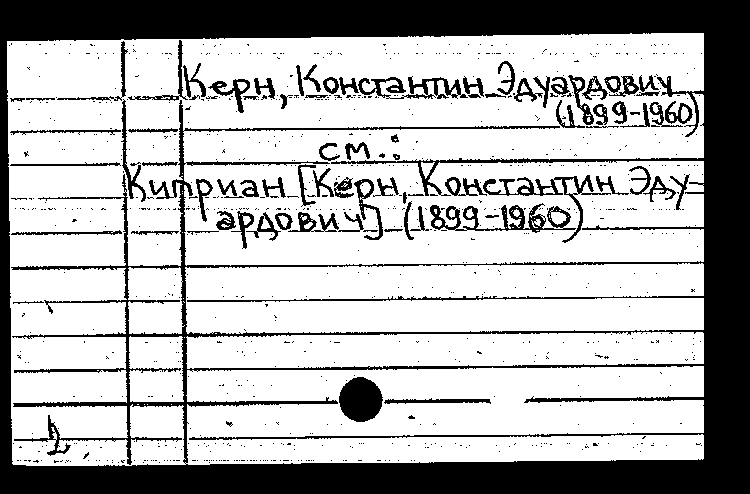 Керн, Константин Эдуардович
(1899-1960)
см.:
Киприан [Керн, Константин Эду-
ардович] (1899-1960)
2.